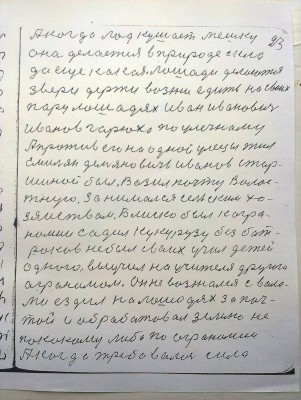 23
А когда год кушает мешку
она делается в природе сило
да еще какая. Лошади делаются
звери держи возжи едит на своих
пару лошадях Иван Иванович
Иванов гарюха по уличному
А против его на одной улецы жил
Емильян демянович Иванов стар
шиной был. Возил почту Волос
тную. Занимался сельским хо
зяйством. Близко был к агра
номии садил кукурузу без бат
раков небыл своих учил детей
одного, выучил на учителя другого
огранолом. Он не возился с вало
ми ездил на лошадях за поч
той и обработовал землю не
пококому либо по ограномии
А когда требовался сила